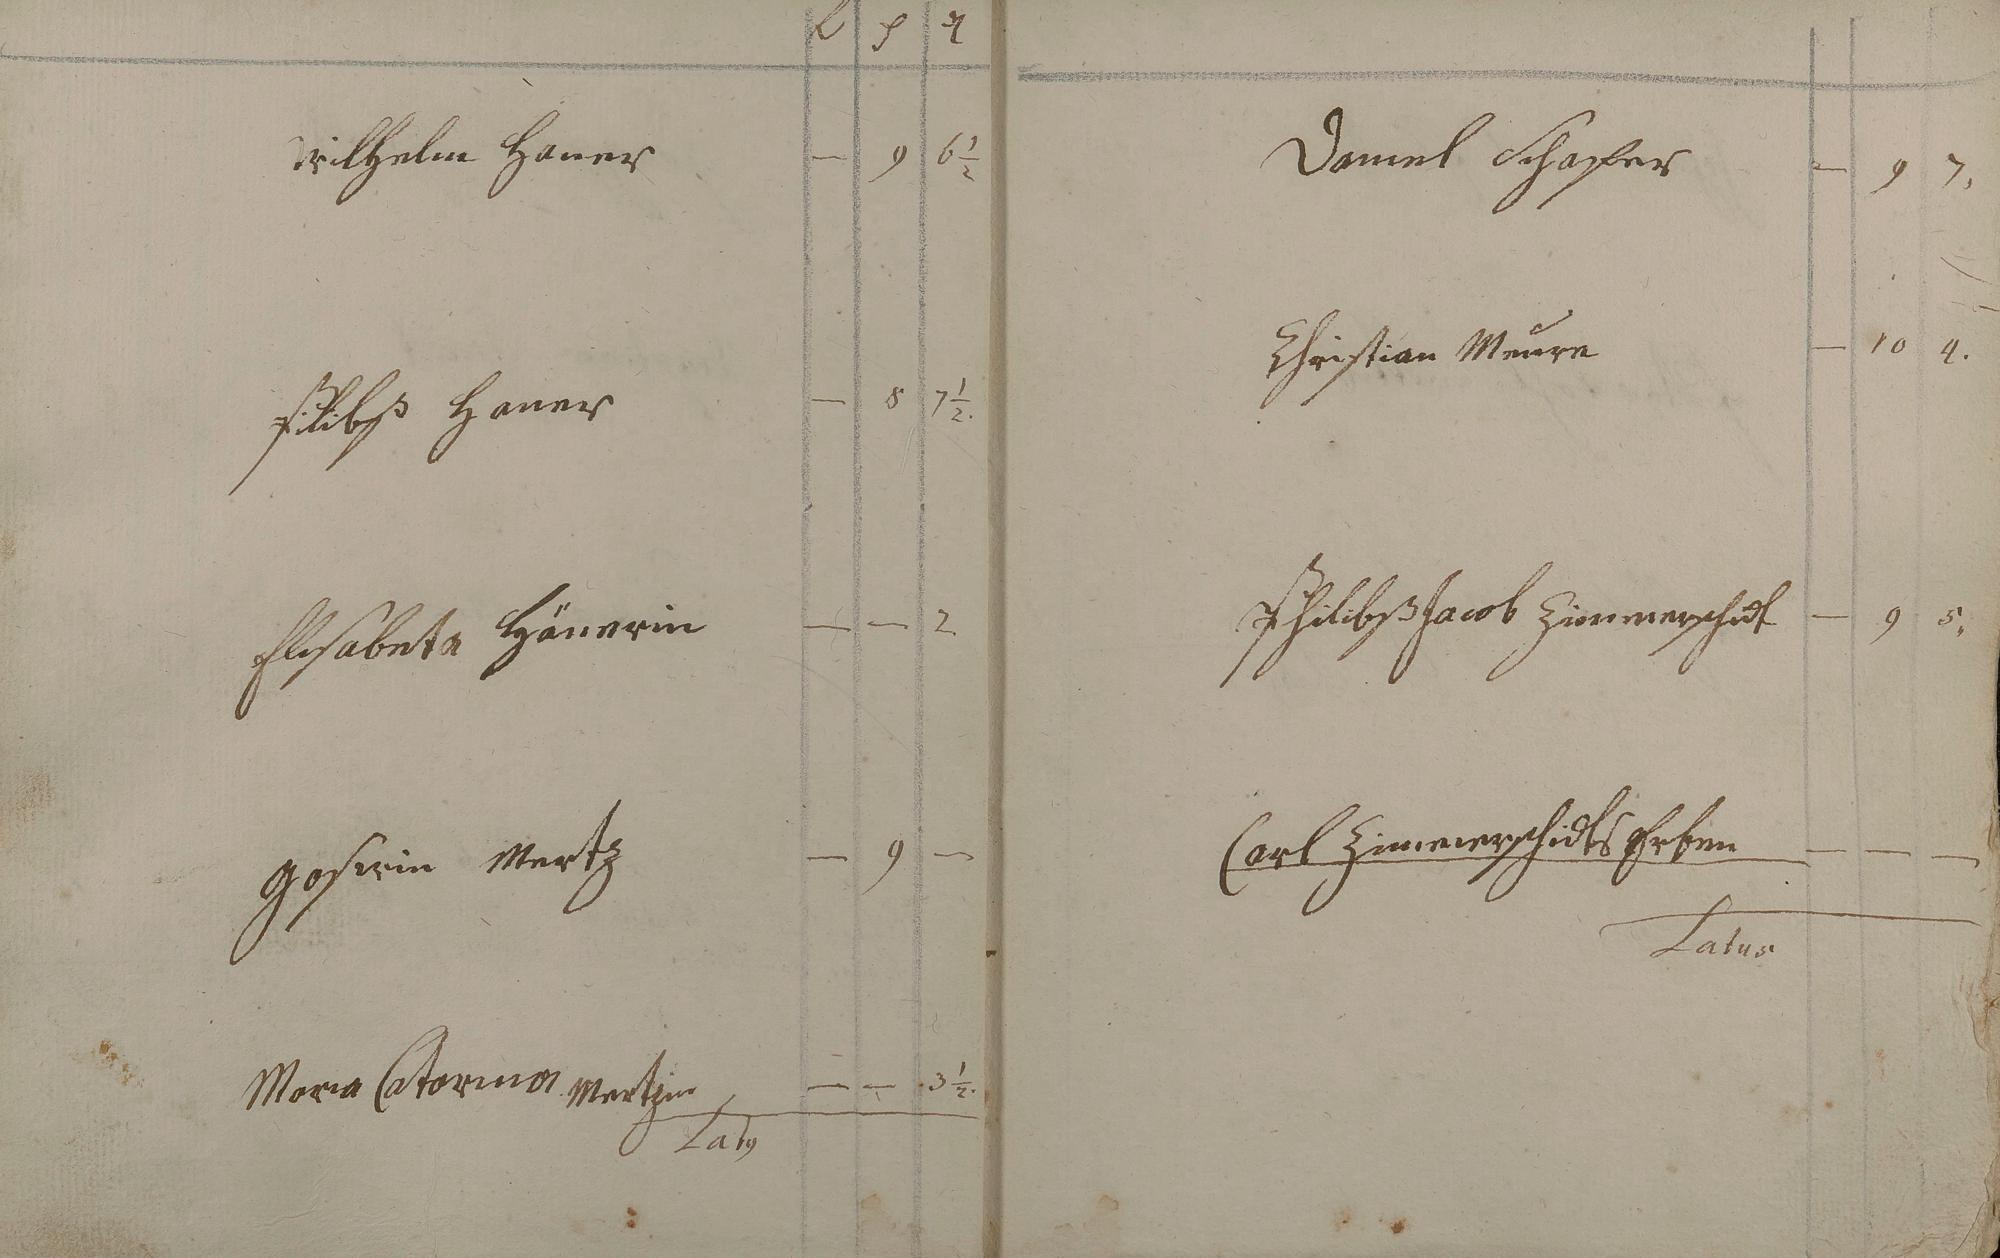 Wilhelm Haner — 9 6 1/2
Filibß Haner — 8 7 1/2.
Elisabeta Hänerin — — 2
Goswin Mertz — 9 —
Maria Catarina Mertzin — — 3 1/2.
Latus
Daniel Schaffer — 9 7.
Christian Meure — 10 4.
Philibß Jacob Zimmerschidt — 9 5.
Carl Zimmerschidts Erben — — —
Latus